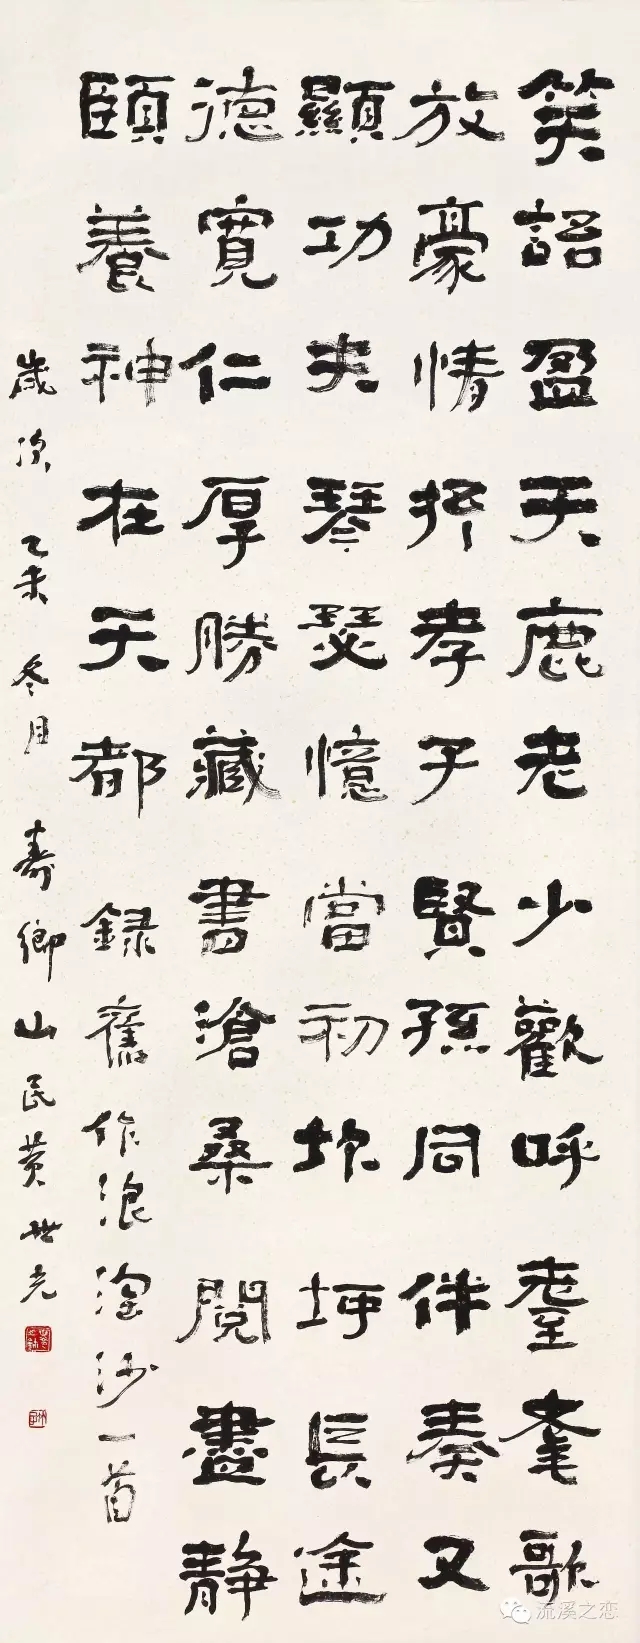 笑語盈天鹿老少歡呼耋耄歌
放豪情抒孝子賢孫同伴奏又
顯功夫琴瑟憶當初坎坷長途
德寬仁厚勝藏書滄桑閱盡靜
頤養神在天都錄舊作浪淘沙一首
歲次乙未冬月壽鄉山民黃世光
流溪之恋